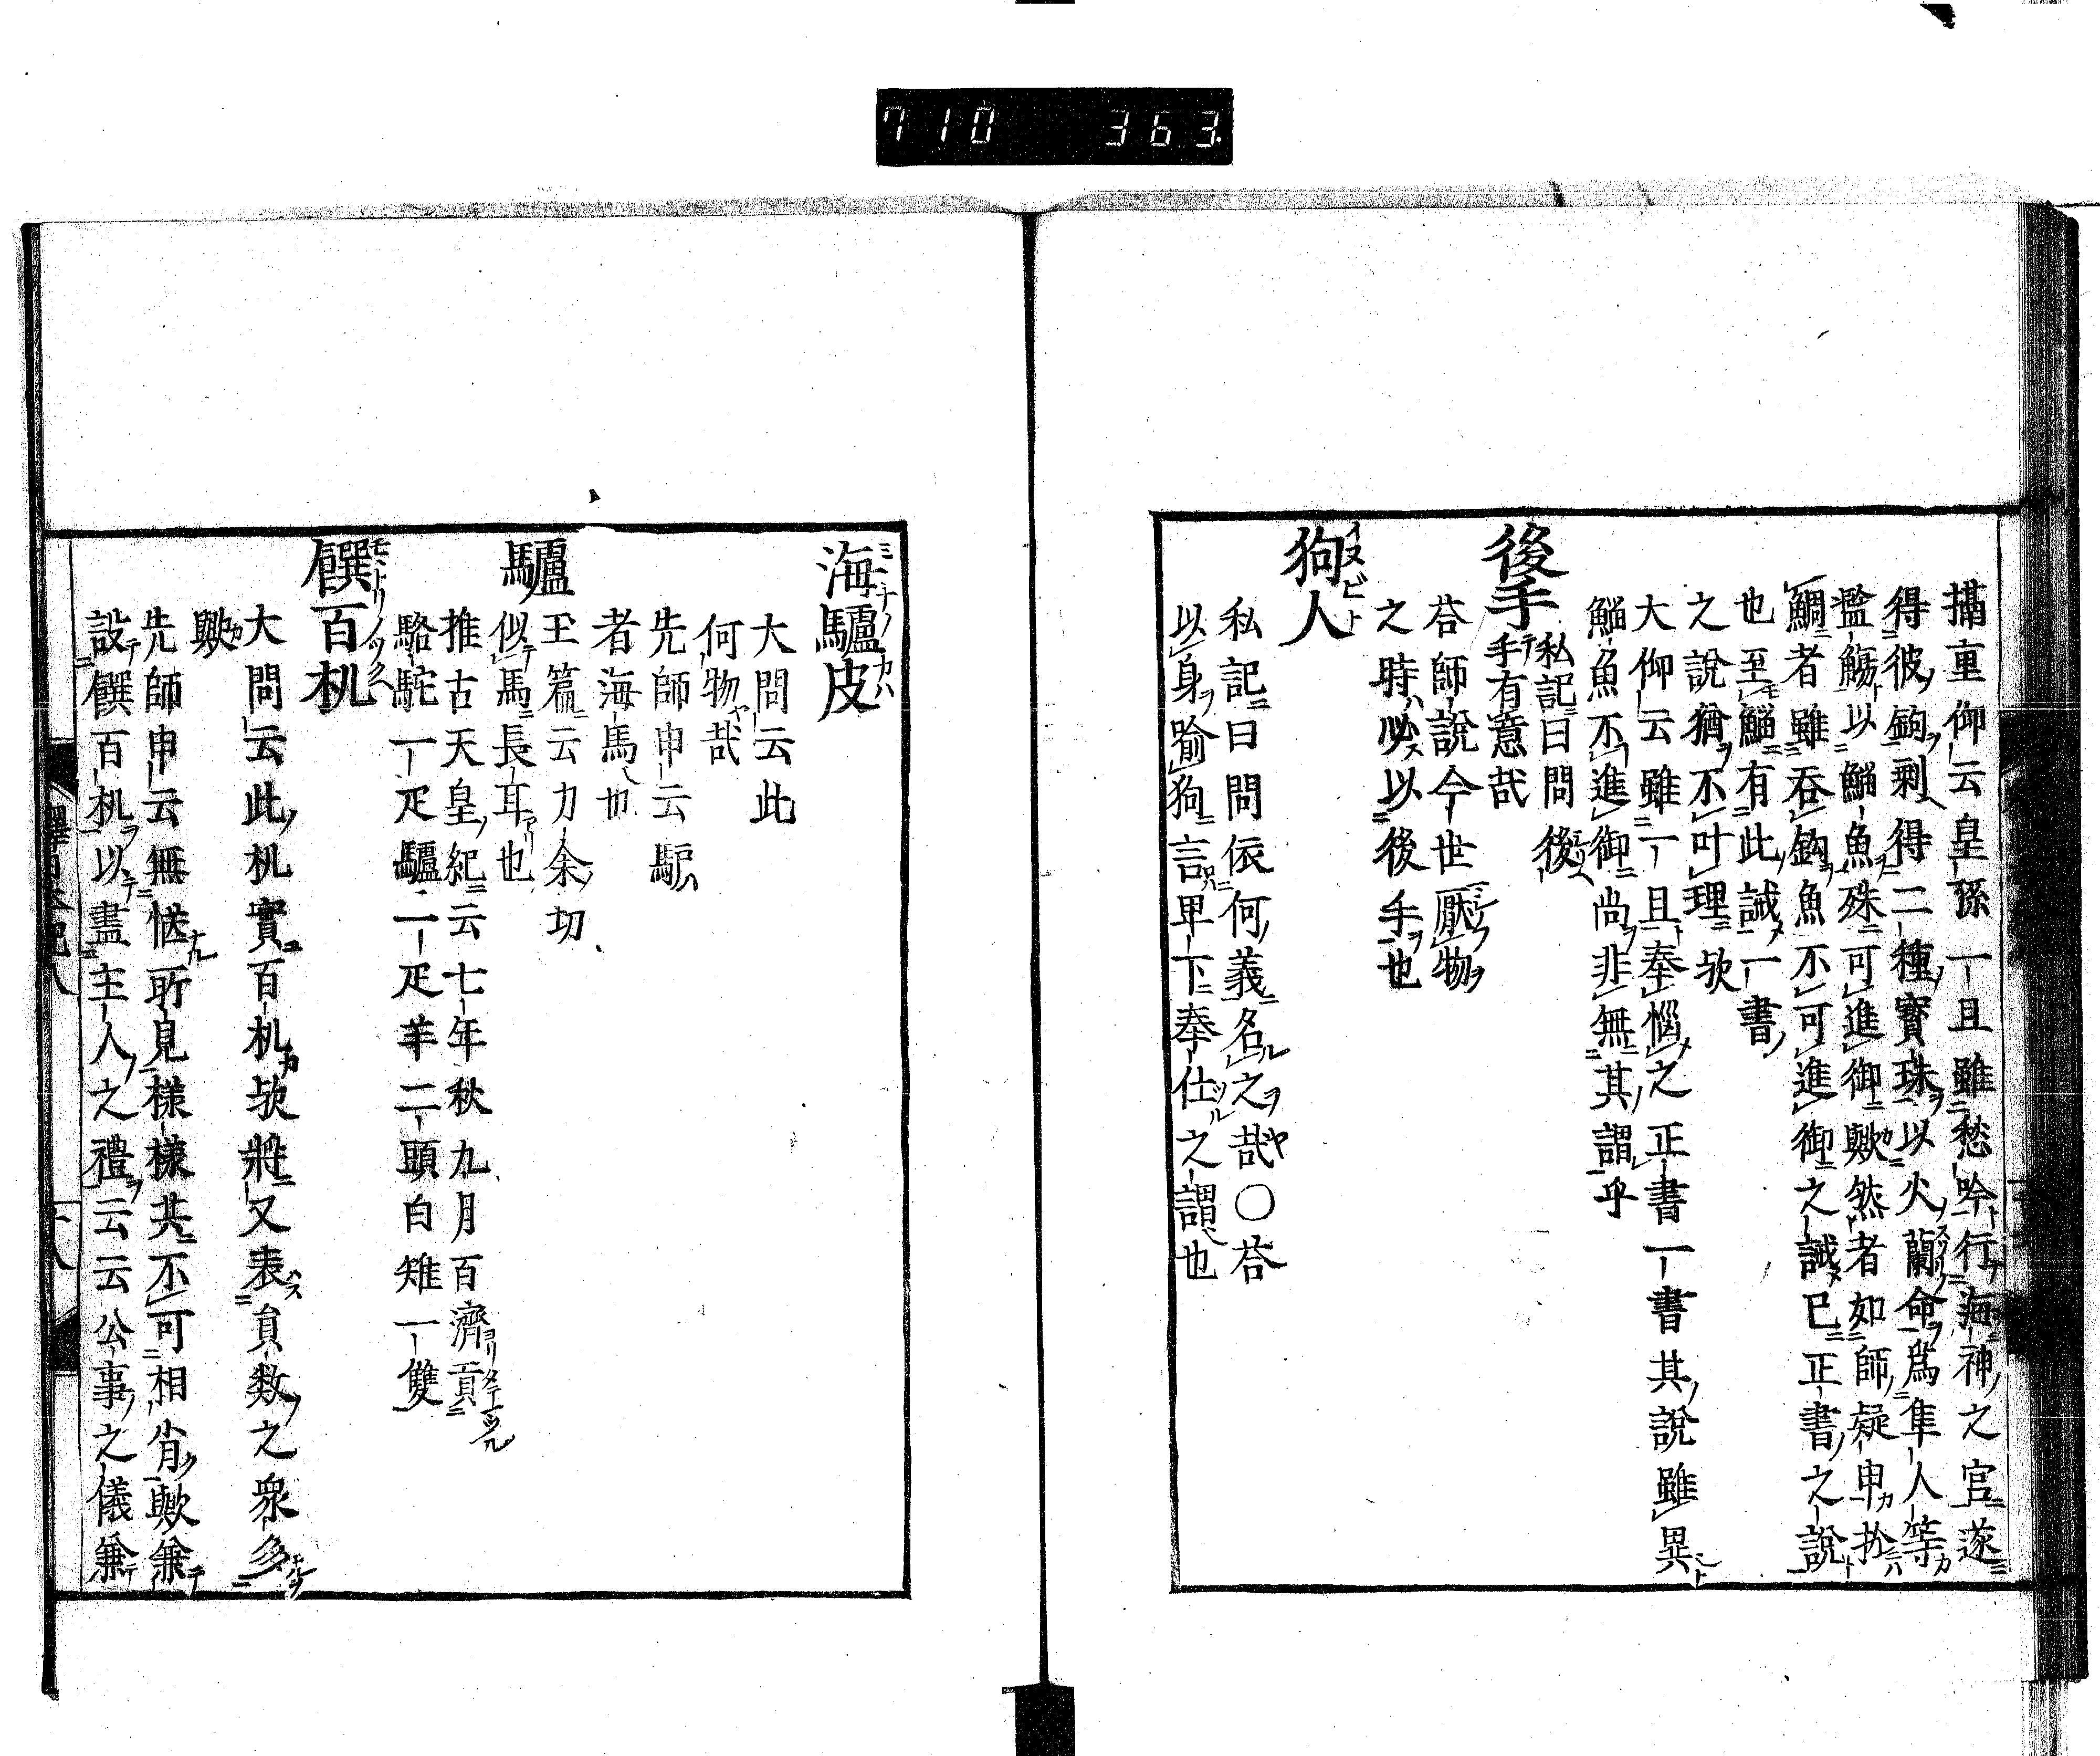 710 363
攝重仰云皇孫一旦雖愁吟行海神之宮遂
得彼鉤剩得二種寳珠以火蘭命爲隼人等
濫觴以鯔魚殊可進御歟然者如師疑申扵
鯛者雖呑鈎魚不可進御之誡巳正書之說
也至鯔有此誡一書
之說猶不叶理欤
大仰云雖一旦奉惱之正書一書其說雖異
鯔魚不進御尚非無其謂乎
後手
私記曰問後
手有意哉
荅師說今世厭物
之時必以後手也
狗人
イヌビト
私記曰問依何義名之哉〇荅
以身喩狗言卑下奉仕之謂也
海驢皮
ミチノカハ
大問云此
何物哉
先師申云驢
者海馬也
驢
玉篇云力余切
似馬長耳也
推古天皇紀云七年秋九月百濟貢
駱駝一疋驢一疋羊二頭白雉一雙
饌百机
大問云此机實百机欤將又表負数之衆多
歟
先師申云無慥所見樣樣共不可相肖歟兼
設饌百机以盡主人之禮云云公事之儀兼